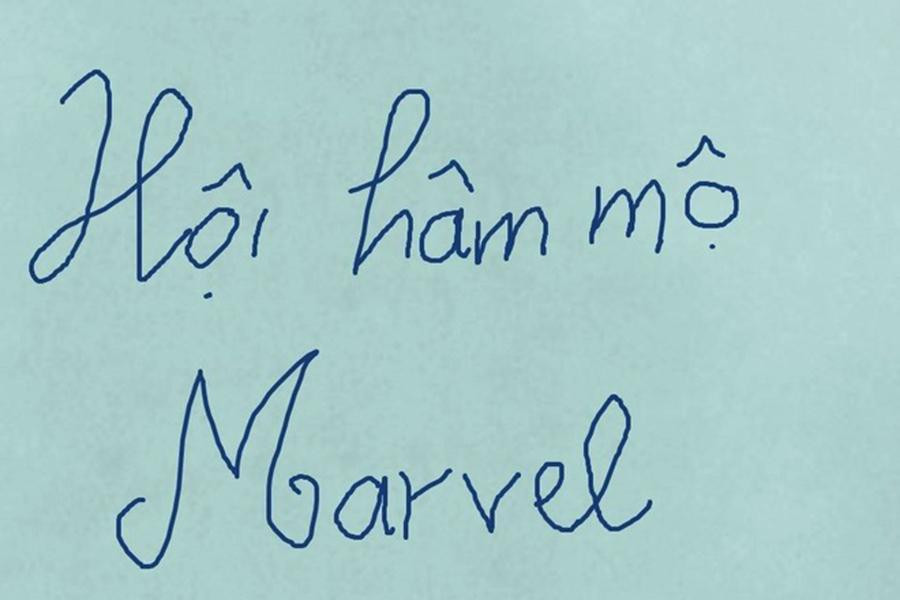 Hội hâm mộ
Marvel